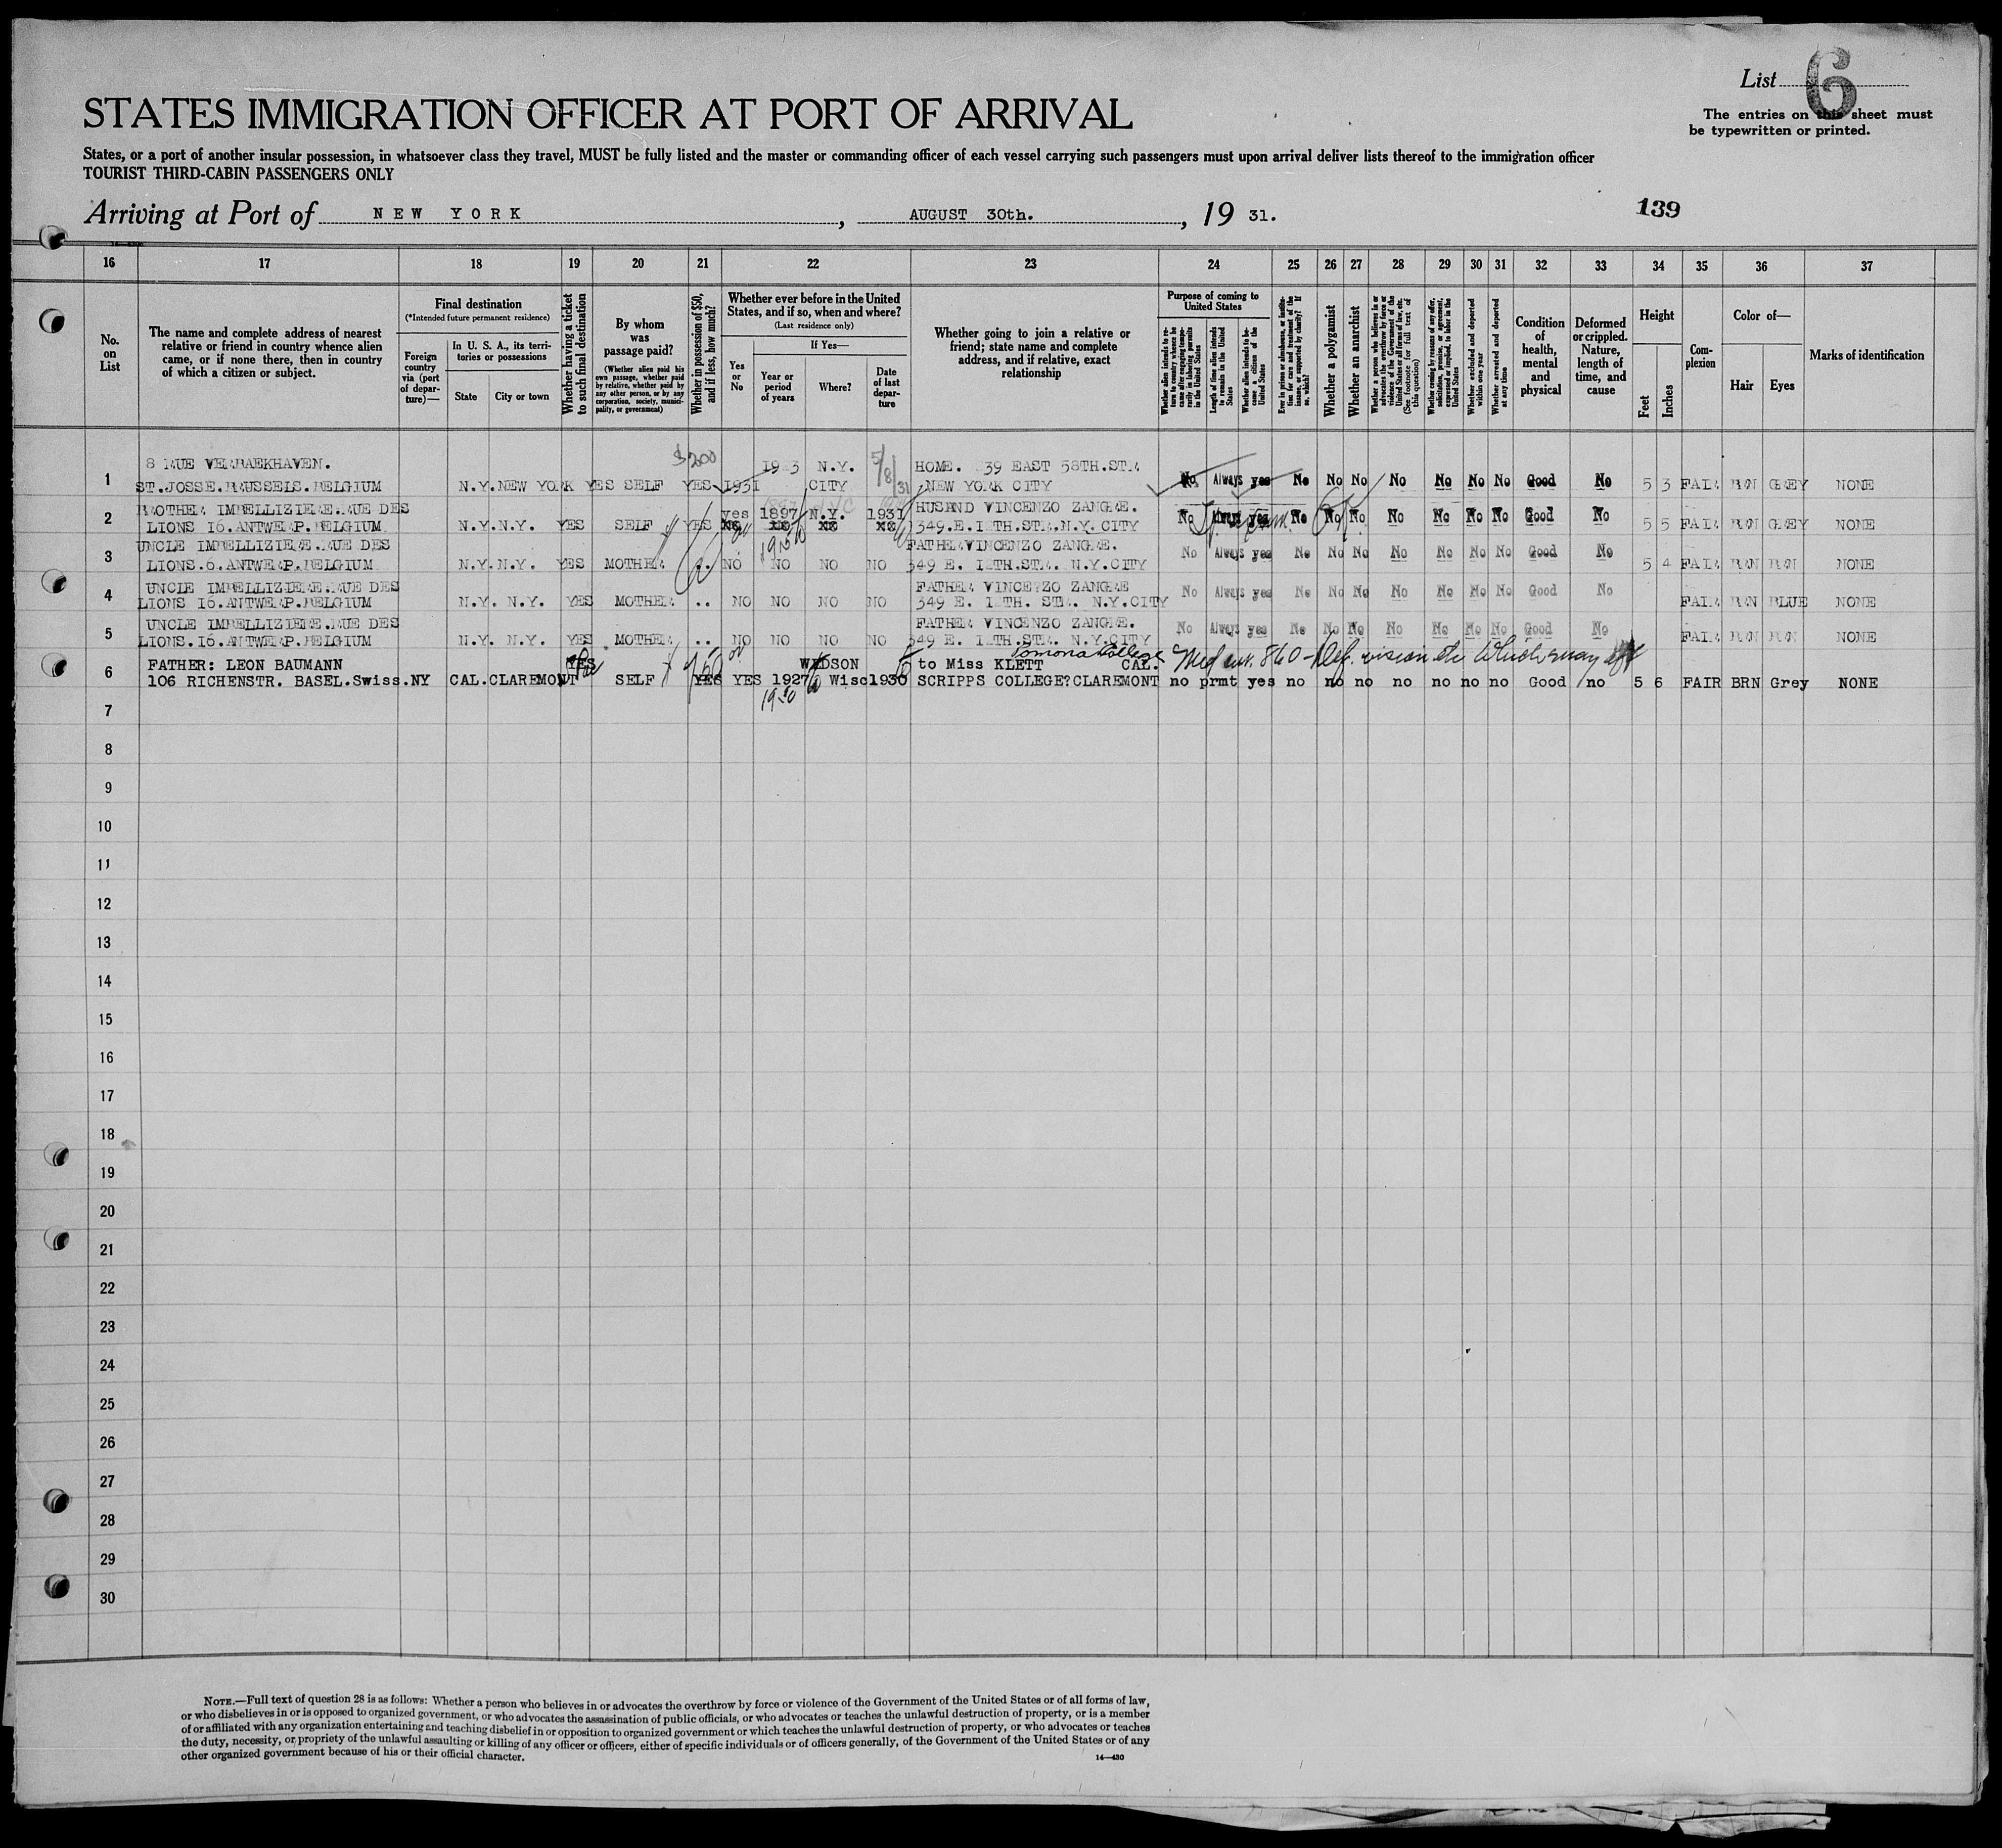 List 6
The entries on this sheet must
be typewritten or printed.
STATES IMMIGRATION OFFICER AT PORT OF ARRIVAL
States, or a port of another insular possession, in whatsoever class they travel, MUST be fully listed and the master or commanding officer of each vessel carrying such passengers must upon arrival deliver lists thereof to the immigration officer
TOURIST THIRD-CABIN PASSENGERS ONLY
Arriving at Port of NEW YORK, AUGUST 30th., 19 31.
139
16 17 18 19 20 21 22 23 24 25 26 27 28 29 30 31 32 33 34 35 36 37
No. on List
The name and complete address of nearest relative or friend in country whence alien came, or if none there, then in country of which a citizen or subject.
Final destination
(*Intended future permanent residence)
Foreign country via (port of departure)—
In U. S. A., its territories or possessions
State
City or town
Whether having a ticket to such final destination
By whom was passage paid?
(Whether alien paid his own passage, whether paid by relative, whether paid by any other person, or by any corporation, society, municipality, or government)
Whether in possession of $50, and if less, how much?
Whether ever before in the United States, and if so, when and where?
(Last residence only)
Yes or No
If Yes—
Year or period of years
Where?
Date of last departure
Whether going to join a relative or friend; state name and complete address, and if relative, exact relationship
Purpose of coming to United States
Whether alien intends to return to country whence he came after engaging temporarily in laboring pursuits in the United States
Length of time alien intends to remain in the United States
Whether alien intends to become a citizen of the United States
Ever in prison or almshouse, or institution for care and treatment of the insane, or supported by charity? If so, which?
Whether a polygamist
Whether an anarchist
Whether a person who believes in or advocates the overthrow by force or violence of the Government of the United States or all forms of law, etc. (See footnote for full text of this question)
Whether coming by reason of any offer, solicitation, promise, or agreement, expressed or implied, to labor in the United States
Whether excluded and deported within one year
Whether arrested and deported at any time
Condition of health, mental and physical
Deformed or crippled. Nature, length of time, and cause
Height
Feet
Inches
Complexion
Color of—
Hair
Eyes
Marks of identification
8 RUE
$200 N.Y. 5/8/31 HOME. 39 EAST 58TH.ST.
1 ST.JOSSE.BRUSSELS.BELGIUM N.Y. NEW YORK YES SELF YES 1931 CITY NEW YORK CITY No Always yes No No No No No No No Good No 5 3 FAIR BRN GREY NONE
BROTHER IMPELLIZIERE.RUE DES yes 1897 N.Y. 1931 HUSBAND VINCENZO
2 LIONS 16.ANTWERP.BELGIUM N.Y. N.Y. YES SELF YES 349.E. N.Y. CITY No Always yes No No No No No No No Good No 5 5 FAIR BRN GREY NONE
UNCLE IMPELLIZIERE.RUE DES FATHER VINCENZO
3 LIONS.6.ANTWERP.BELGIUM N.Y. N.Y. YES MOTHER NO NO NO NO 349 E. N.Y.CITY No Always yes No No No No No No No Good No 5 4 FAIR BRN BRN NONE
UNCLE IMPELLIZIERE.RUE DES FATHER VINCENZO
4 LIONS 16.ANTWERP.BELGIUM N.Y. N.Y. YES MOTHER .. NO NO NO NO 349 E. N.Y.CITY No Always yes No No No No No No No Good No FAIR BRN BLUE NONE
UNCLE IMPELLIZIERE.RUE DES FATHER VINCENZO
5 LIONS.16.ANTWERP.BELGIUM N.Y. N.Y. YES MOTHER .. NO NO NO NO 349 E. N.Y.CITY No Always yes No No No No No No No Good No FAIR BRN BRN NONE
Pomona College
FATHER: LEON BAUMANN YES to Miss KLETT CAL. Med
6 106 RICHENSTR. BASEL.Swiss.NY CAL.CLAREMONT SELF YES YES 1927 Wisc 1930 SCRIPPS COLLEGE?CLAREMONT no prmt yes no no no no no no no Good no 5 6 FAIR BRN Grey NONE
7
8
9
10
11
12
13
14
15
16
17
18
19
20
21
22
23
24
25
26
27
28
29
30
NOTE.—Full text of question 28 is as follows: Whether a person who believes in or advocates the overthrow by force or violence of the Government of the United States or of all forms of law,
or who disbelieves in or is opposed to organized government, or who advocates the assassination of public officials, or who advocates or teaches the unlawful destruction of property, or is a member
of or affiliated with any organization entertaining and teaching disbelief in or opposition to organized government or which teaches the unlawful destruction of property, or who advocates or teaches
the duty, necessity, or propriety of the unlawful assaulting or killing of any officer or officers, either of specific individuals or of officers generally, of the Government of the United States or of any
other organized government because of his or their official character.
14—430